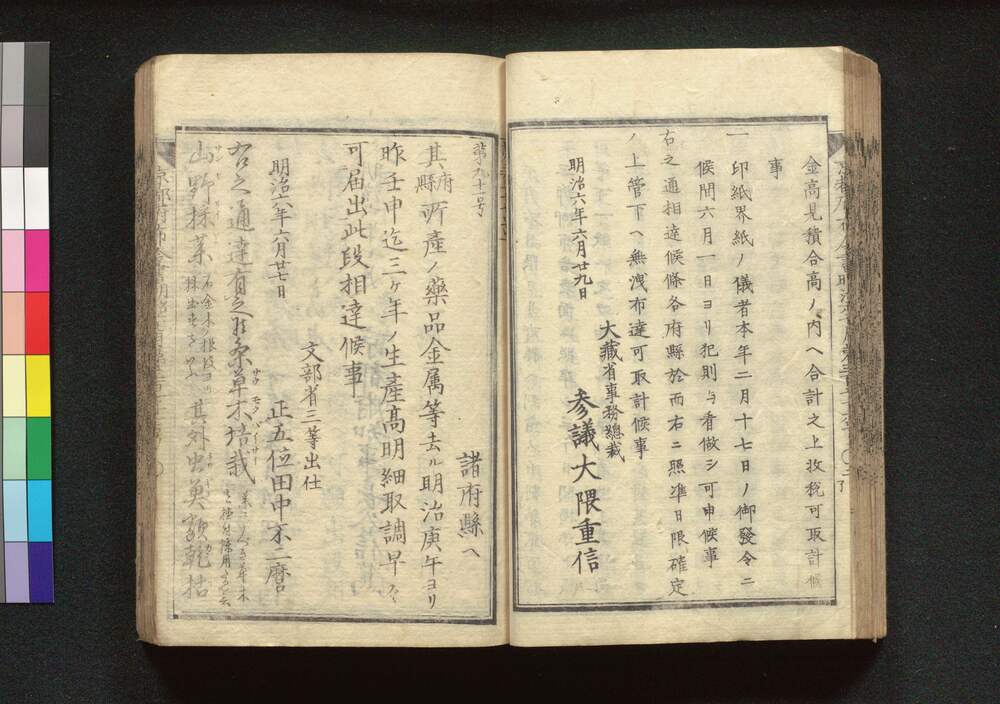 金高見積合高ノ内ヘ合計之上收税可取計候
事
一 印紙界紙ノ儀者本年二月十七日ノ御發令ニ
候間六月一日ヨリ犯則与看做シ可申候事
右之通相達候條各府縣於而右ニ照準日限確定
ノ上管下ヘ無洩布達可取計候事
明治六年六月廿九日
大藏省事務總裁
参議大隈重信
第九十一号
諸府縣ヘ
其府縣所産ノ藥品金属等去ル明治庚午ヨリ
昨壬申迄三ケ年ノ生産髙明細取調早々
可届出此段相達候事
文部省三等出仕
明治六年六月廿七日 正五位田中不二麿
右之通達有之候条草木培栽
山野採薬 其外虫魚 乾枯